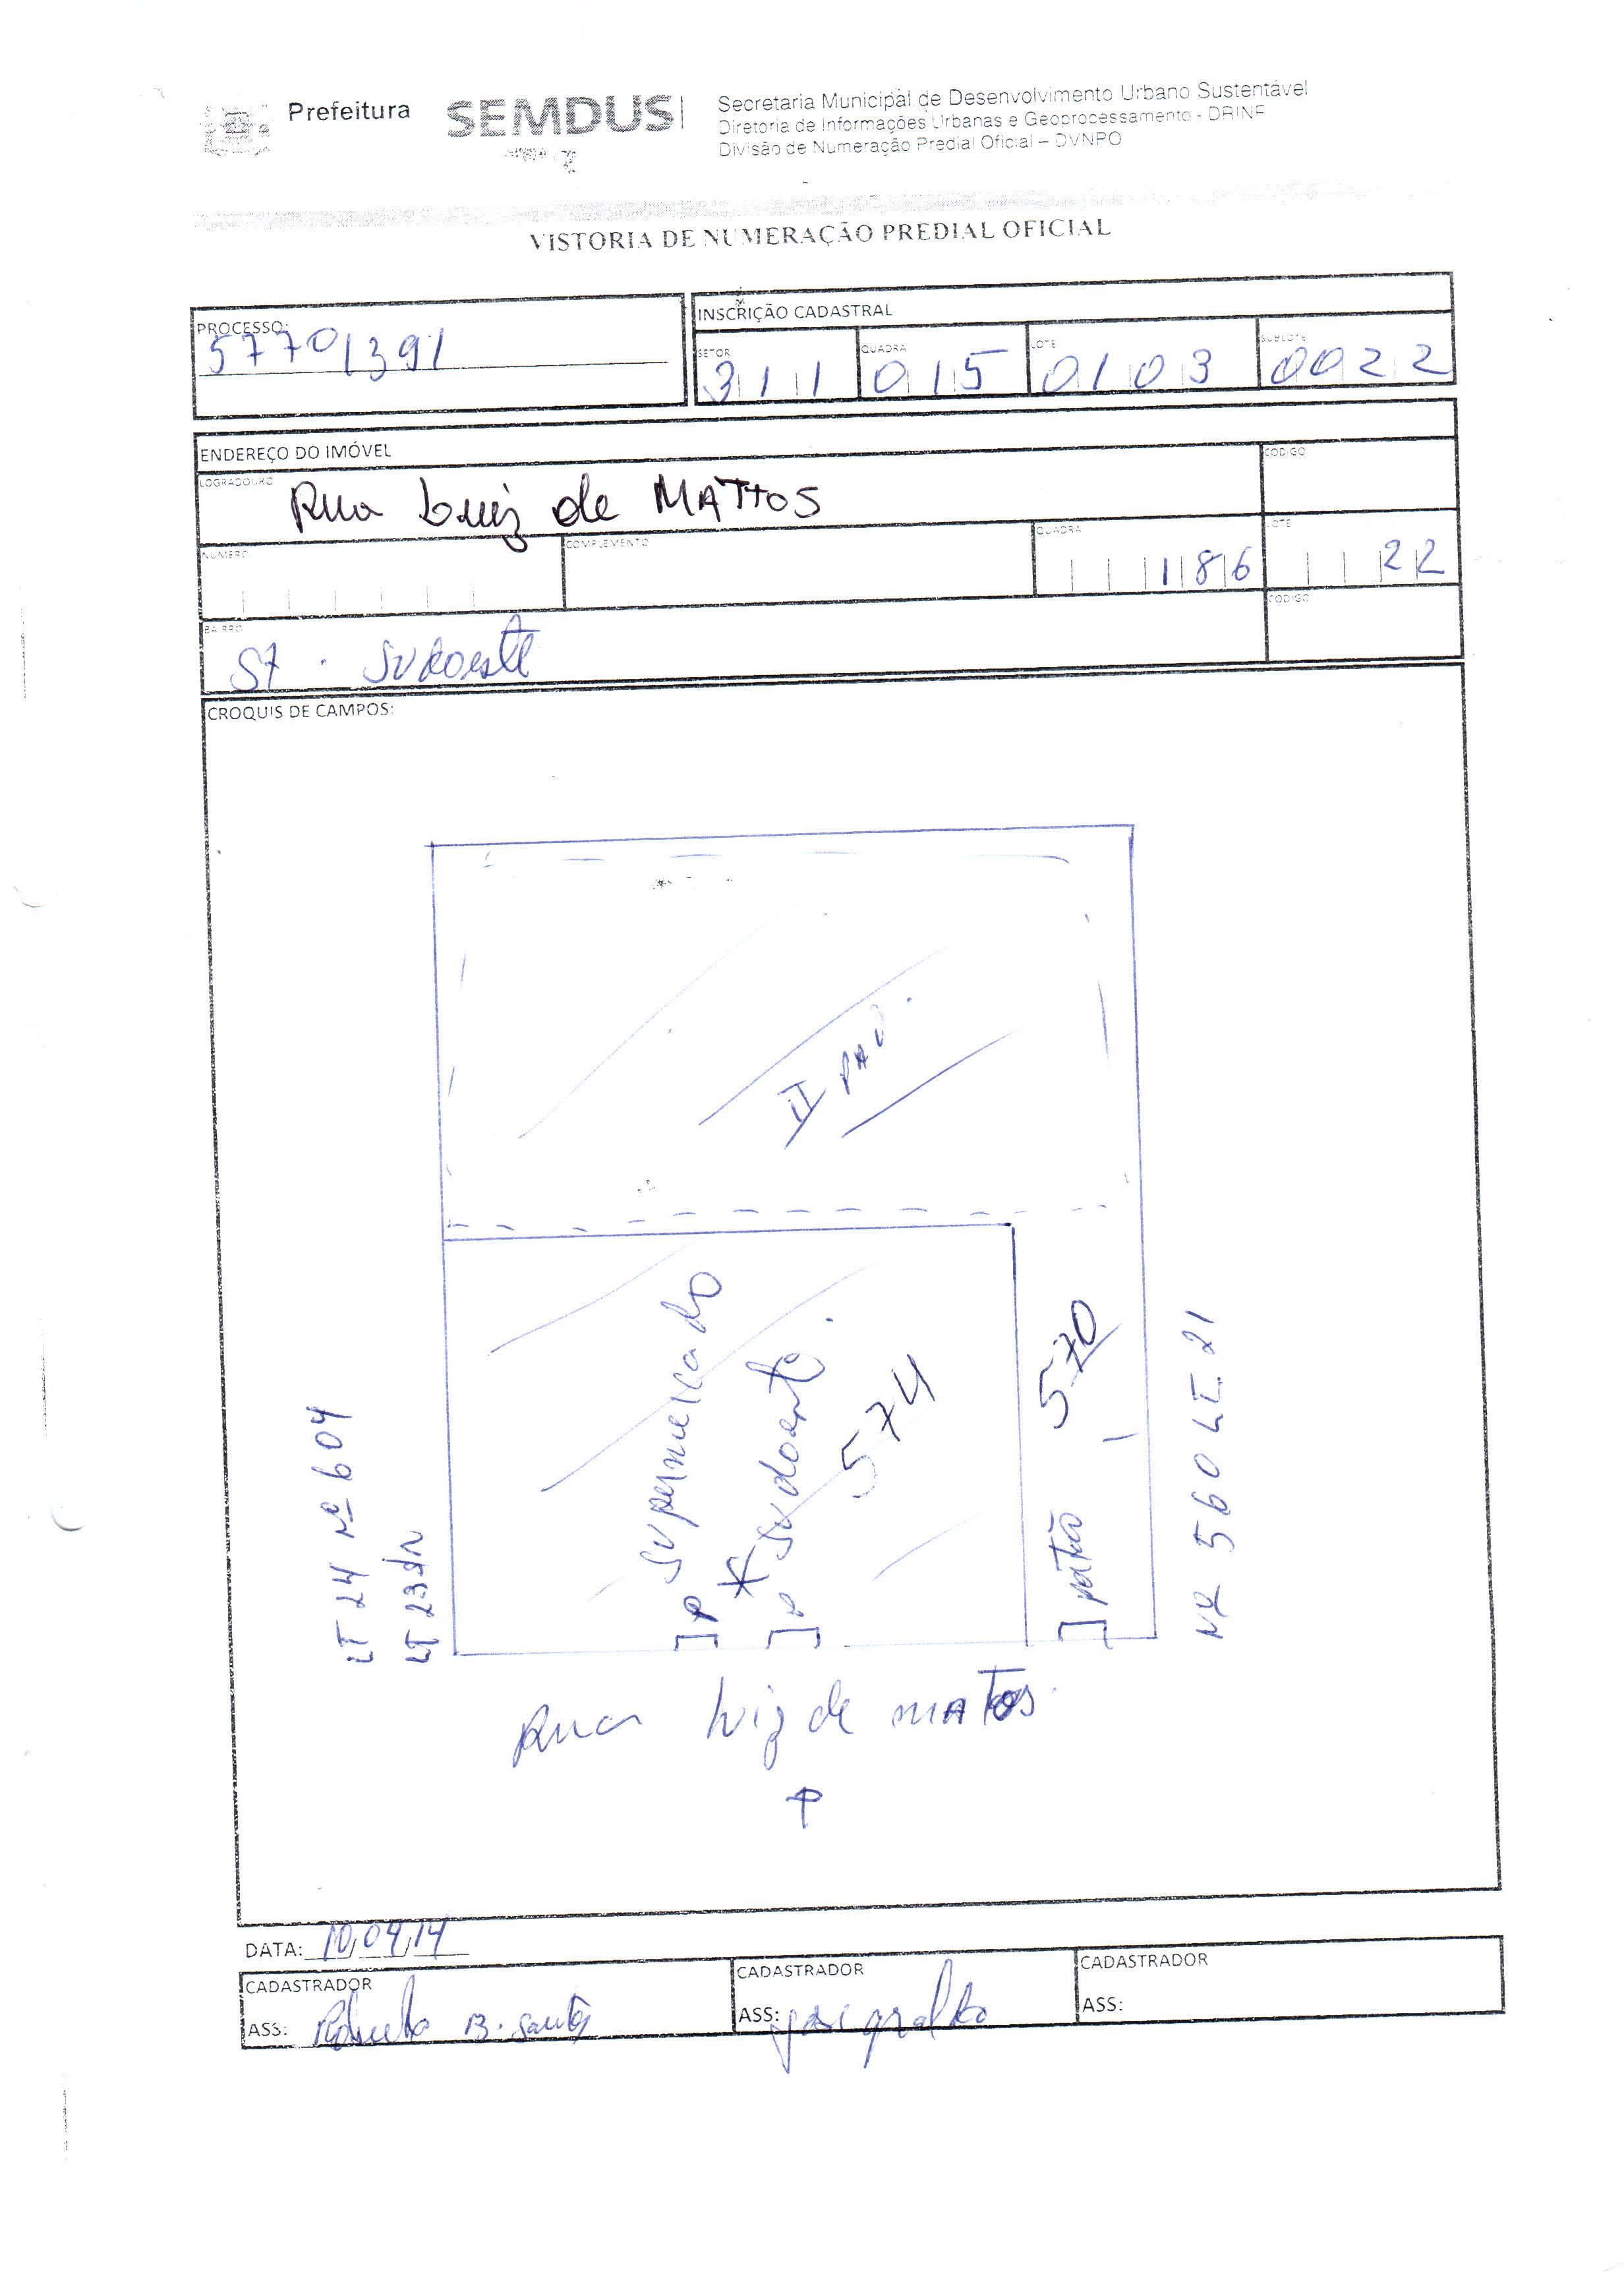 Prefeitura
SEMDUS
Secretaria Municipal de Desenvolvimento Urbano Sustentável
Diretoria de Informações Urbanas e Geoprocessamento - DRINF
Divisão de Numeração Predial Oficial – DVNPO
VISTORIA DE NUMERAÇÃO PREDIAL OFICIAL
PROCESSO:
57701391
INSCRIÇÃO CADASTRAL
SETOR QUADRA LOTE SUBLOTE
311 015 0103 0022
ENDEREÇO DO IMÓVEL
LOGRADOURO CODIGO
Rua Luiz de MATTOS
NUMERO COMPLEMENTO QUADRA LOTE
186 22
BAIRRO CODIGO
St. Sudoeste
CROQUIS DE CAMPOS:
II PAV.
Supermercado
Sudoeste.
574
570
portão
LT 24 Nº 604
LT 23 s/n
NR 560 LT. 21
Rua Luiz de matos
DATA: 10/04/14
CADASTRADOR CADASTRADOR CADASTRADOR
ASS: B. Santos ASS: ASS: